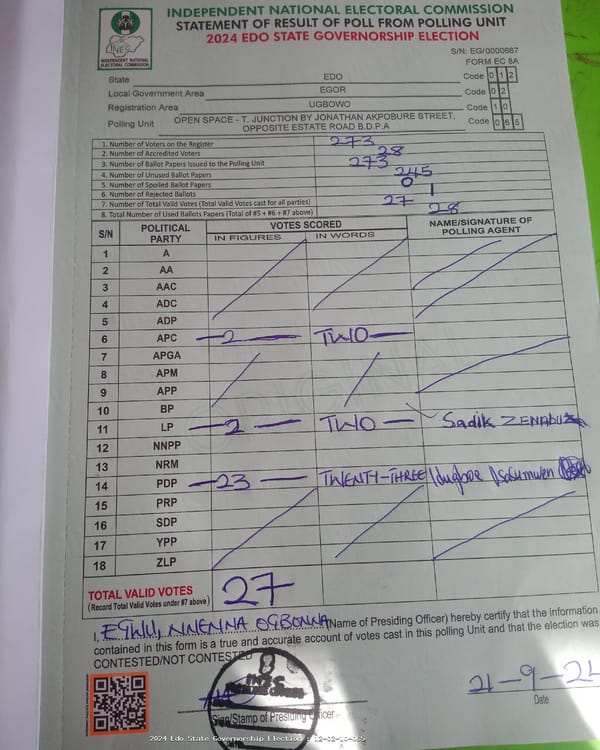 INDEPENDENT NATIONAL ELECTORAL COMMISSION
STATEMENT OF RESULT OF POLL FROM POLLING UNIT
2024 EDO STATE GOVERNORSHIP ELECTION
INEC
INDEPENDENT NATIONAL
ELECTORAL COMMISSION
S/N: EG/0000867
FORM EC 8A
State EDO Code 0 1 2
Local Government Area EGOR Code 0 2
Registration Area UGBOWO Code 1 0
Polling Unit OPEN SPACE - T. JUNCTION BY JONATHAN AKPOBURE STREET, OPPOSITE ESTATE ROAD B.D.P.A Code 0 6 5
1. Number of Voters on the Register 273
2. Number of Accredited Voters 28
3. Number of Ballot Papers Issued to the Polling Unit 273
4. Number of Unused Ballot Papers 245
5. Number of Spoiled Ballot Papers 0
6. Number of Rejected Ballots 1
7. Number of Total Valid Votes (Total Valid Votes cast for all parties) 27
8. Total Number of Used Ballots Papers (Total of #5 + #6 + #7 above) 28
S/N POLITICAL PARTY VOTES SCORED NAME/SIGNATURE OF POLLING AGENT
IN FIGURES IN WORDS
1 A
2 AA
3 AAC
4 ADC
5 ADP
6 APC 2 TWO
7 APGA
8 APM
9 APP
10 BP
11 LP 2 TWO Sadik ZENABU
12 NNPP
13 NRM
14 PDP 23 TWENTY-THREE
15 PRP
16 SDP
17 YPP
18 ZLP
TOTAL VALID VOTES 27
(Record Total Valid Votes under #7 above)
I, EGWU, NNENNA OGBONNA (Name of Presiding Officer) hereby certify that the information
contained in this form is a true and accurate account of votes cast in this polling Unit and that the election was
CONTESTED/NOT CONTESTED
Sign/Stamp of Presiding Officer
21-9-24
Date